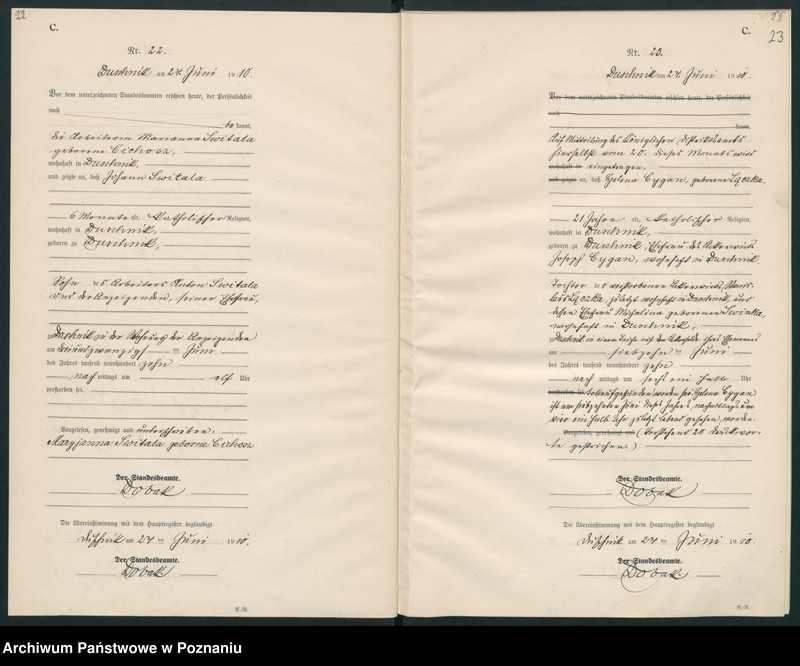 22
C.
Nr. 22.
Duschnik am 24. Juni 1910.
Vor dem unterzeichneten Standesbeamten erschien heute, der Persönlichkeit
nach
be kannt,
die Arbeiterin Marianna Switala
geborene Cichosz,
wohnhaft in Duschnik,
und zeigte an, daß Johann Switala
6 Monate alt, katholischer Religion,
wohnhaft in Duschnik,
geboren zu Duschnik,
Sohn des Arbeiters Anton Switala
und der Anzeigenden, seiner Ehefrau,
zu Duschnik in der Wohnung der Anzeigenden
am dreiundzwanzigsten Juni
des Jahres tausend neunhundert zehn
nach mittags um elf Uhr
verstorben sei.
Vorgelesen, genehmigt und unterschrieben.
Maryjanna Switala geborne Cichosz
Der Standesbeamte.
Dobak
Die Übereinstimmung mit dem Hauptregister beglaubigt
Duschnik am 24 ten Juni 1910.
Der Standesbeamte.
Dobak.
R.-R.
23
C.
Nr. 23.
Duschnik am 24. Juni 1910.
Vor dem unterzeichneten Standesbeamten erschien heute, der Persönlichkeit
nach
kannt,
Auf Mitteilung des Königlichen Distriktsamts
hierselbst vom 20. dieses Monats wird
wohnhaft in eingetragen,
und zeigte an, daß Helena Cygan, geborene Łączka,
21 Jahre alt, katholischer Religion,
wohnhaft in Duschnik,
geboren zu Duschnik, Ehefrau des Ackerwirts
Joseph Cygan, wohnhaft in Duschnik,
Tochter des verstorbenen Ackerwirts
Łączka zuletzt wohnhaft in Duschnik, und
dessen Ehefrau Michalina geborenen
wohnhaft in Duschnik,
zu Duschnik in einem Teiche auf der
am siebzehn ten Juni
des Jahres tausend neunhundert zehn
nach mittags um sechs ein halb Uhr
verstorben sei tot aufgefunden worden sei. Helena Cygan
ist am siebzehnten Juni dieses Jahres, nachmittags um
vier ein halb Uhr zuletzt lebend gesehen worden.
Vorgelesen, genehmigt und (Vorstehend 20 Druckwor-
te gestrichen.)
Der Standesbeamte.
Dobak
Die Übereinstimmung mit dem Hauptregister beglaubigt
Duschnik am 24 ten Juni 1910.
Der Standesbeamte.
Dobak.
R.-R.
Archiwum Państwowe w Poznaniu